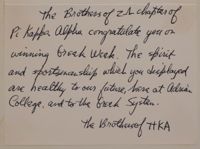 The Brothers of chapter of
Pi Kappa Alpha congratulate you on
winning Greek Week. The spirit
and sportsmanship which you displayed
are healthy to our future, here at Adrian
College, and to the Greek System.
The Brothers of ΠΚΑ